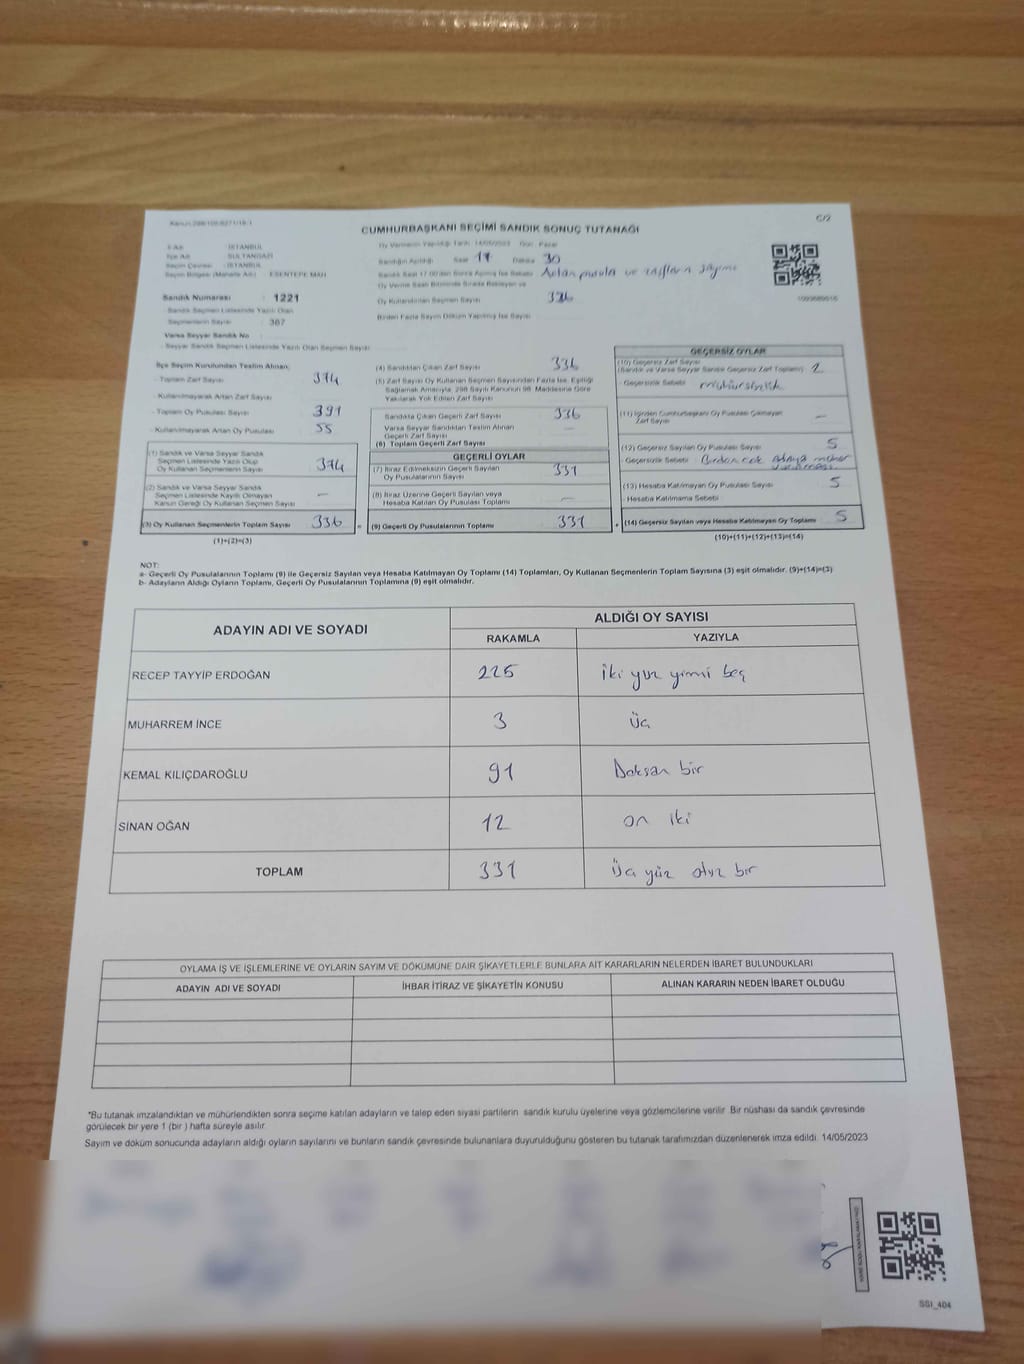 C/2
CUMHURBAŞKANI SEÇİMİ SANDIK SONUÇ TUTANAĞI
İl Adı : İSTANBUL
İlçe Adı : SULTANGAZİ
Seçim Çevresi : İSTANBUL
Seçim Bölgesi (Mahalle Adı) : ESENTEPE MAH
Sandık Numarası : 1221
Sandık Seçmen Listesinde Yazılı Olan
Seçmenlerin Sayısı : 387
Varsa Seyyar Sandık No :
Seyyar Sandık Seçmen Listesinde Yazılı Olan Seçmen Sayısı :
Oy Vermenin Yapıldığı Tarih: 14/05/2023 Gün: Pazar
Sandığın Açıldığı Saat 17 Dakika 30
Sandık Saat 17:00'den Sonra Açılmış İse Sebebi: Artan pusula ve zarfların sayımı
Oy Verme Saati Bitiminde Sırada Bekleyen ve
Oy Kullandırılan Seçmen Sayısı
Birden Fazla Sayım Döküm Yapılmış İse Sayısı
İlçe Seçim Kurulundan Teslim Alınan;
- Toplam Zarf Sayısı 374
- Kullanılmayarak Artan Zarf Sayısı
- Toplam Oy Pusulası Sayısı 391
- Kullanılmayarak Artan Oy Pusulası 55
(1) Sandık ve Varsa Seyyar Sandık
Seçmen Listesinde Yazılı Olup
Oy Kullanan Seçmenlerin Sayısı 374
(2) Sandık ve Varsa Seyyar Sandık
Seçmen Listesinde Kayıtlı Olmayan
Kanun Gereği Oy Kullanan Seçmen Sayısı —
(3) Oy Kullanan Seçmenlerin Toplam Sayısı 336
(1)+(2)=(3)
(4) Sandıktan Çıkan Zarf Sayısı 336
(5) Zarf Sayısı Oy Kullanan Seçmen Sayısından Fazla İse, Eşitliği
Sağlamak Amacıyla, 298 Sayılı Kanunun 98. Maddesine Göre
Yakılarak Yok Edilen Zarf Sayısı
Sandıkta Çıkan Geçerli Zarf Sayısı 336
Varsa Seyyar Sandıktan Teslim Alınan
Geçerli Zarf Sayısı —
(6) Toplam Geçerli Zarf Sayısı
GEÇERLİ OYLAR
(7) İtiraz Edilmeksizin Geçerli Sayılan
Oy Pusulalarının Sayısı 331
(8) İtiraz Üzerine Geçerli Sayılan veya
Hesaba Katılan Oy Pusulası Toplamı —
= (9) Geçerli Oy Pusulalarının Toplamı 331
GEÇERSİZ OYLAR
(10) Geçersiz Zarf Sayısı
(Sandık ve Varsa Seyyar Sandık Geçersiz Zarf Toplamı)
- Geçersizlik Sebebi
(11) İçinden Cumhurbaşkanı Oy Pusulası Çıkmayan
Zarf Sayısı —
(12) Geçersiz Sayılan Oy Pusulası Sayısı 5
- Geçersizlik Sebebi : Birden çok Adaya mühür
(13) Hesaba Katılmayan Oy Pusulası Sayısı 5
- Hesaba Katılmama Sebebi :
+ (14) Geçersiz Sayılan veya Hesaba Katılmayan Oy Toplamı 5
(10)+(11)+(12)+(13)=(14)
NOT:
a- Geçerli Oy Pusulalarının Toplamı (9) ile Geçersiz Sayılan veya Hesaba Katılmayan Oy Toplamı (14) Toplamları, Oy Kullanan Seçmenlerin Toplam Sayısına (3) eşit olmalıdır. (9)+(14)=(3)
b- Adayların Aldığı Oyların Toplamı, Geçerli Oy Pusulalarının Toplamına (9) eşit olmalıdır.
ADAYIN ADI VE SOYADI
ALDIĞI OY SAYISI
RAKAMLA YAZIYLA
RECEP TAYYİP ERDOĞAN 225 İki yüz yirmi beş
MUHARREM İNCE 3 Üç
KEMAL KILIÇDAROĞLU 91 Doksan bir
SİNAN OĞAN 12 on iki
TOPLAM 331 Üç yüz otuz bir
OYLAMA İŞ VE İŞLEMLERİNE VE OYLARIN SAYIM VE DÖKÜMÜNE DAİR ŞİKAYETLERLE BUNLARA AİT KARARLARIN NELERDEN İBARET BULUNDUKLARI
ADAYIN ADI VE SOYADI İHBAR İTİRAZ VE ŞİKAYETİN KONUSU ALINAN KARARIN NEDEN İBARET OLDUĞU
*Bu tutanak imzalandıktan ve mühürlendikten sonra seçime katılan adayların ve talep eden siyasi partilerin sandık kurulu üyelerine veya gözlemcilerine verilir. Bir nüshası da sandık çevresinde
görülecek bir yere 1 (bir) hafta süreyle asılır.
Sayım ve döküm sonucunda adayların aldığı oyların sayılarını ve bunların sandık çevresinde bulunanlara duyurulduğunu gösteren bu tutanak tarafımızdan düzenlenerek imza edildi. 14/05/2023
SSI_404